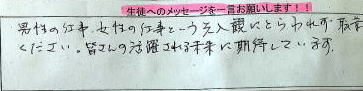 生徒へのメッセージを一言お願いします！！
男性の仕事、女性の仕事という先入観にとらわれず 取組
ください。皆さんの活躍される未来に期待しています。